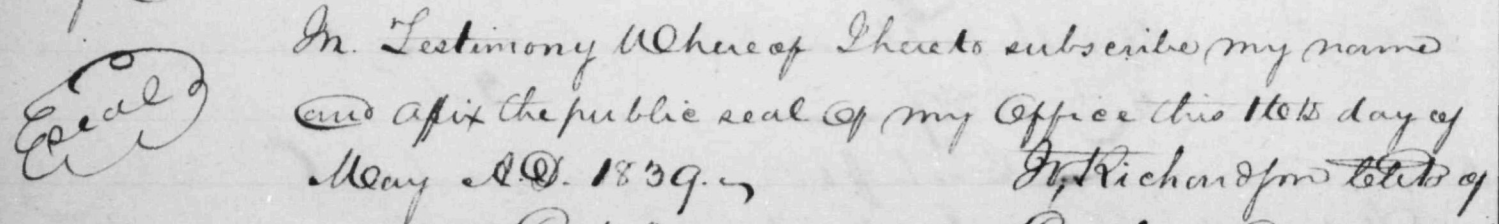 Seal
In Testimony Whereof I hereto subscribe my name
and affix the public seal of my Office this day of
May A.D. 1839. Richardson Clerk of